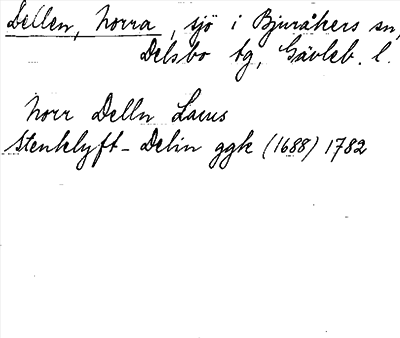 Dellen, Norra, sjö i Bjuråkers sn,
Delsbo tg, Gävleb. l.
Norr Delln Lacus
Stenklyft- Delin ggk (1688) 1782